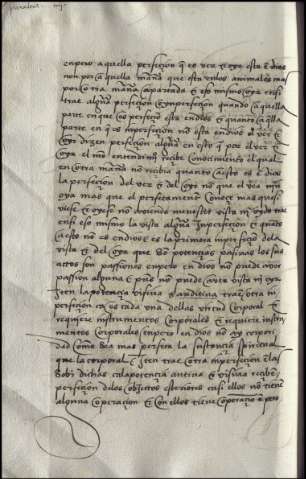 enpero aquella perfeçion q es ver & oyr esta e dios
non por aquella man̄a que esta enlos animales mas
por otra man̄a apartada & eso mismo oyr ensi
trae alguna perfeçion & ynperfeçion quando aquella
parte en que es perfeçio esta en dios & quanto a q̄lla
parte en q es inperfeçion no esta en dios el ver &
oyr dizen perfeçion alguna en esto q por el ver &
oyr el entendimi reçibe conosçimiento el qual
en otra man̄a no reçibia quanto a esto es e dios
la perfeçion del ver & del oyr no que el vea nin
oya mas que el perfectamente conosçe mas que si
viese & oyese no aviendo menester vista ni oydo trae
ensi eso mismo la vista alguna inperfeçion & quanto
a esto no es en dios & la primera inperfeçio dela
vista & del oyr que son potençias pasivas los sus
actos son pasiones enpero en dios no puede aver
pasion alguna & pues no puede aver vista ni oyr
Iten la potençia visiva & auditiva trae otra in
perfeçion ca es cada una dellas virtud corporal &
requiere instrumentos corporales & requiere instru
mentos corporales enpero en dios no ay corpori
dad como sea mas perfeta la sustançia spiritual
que la corporal Iten trae otra inperfeçion elas
sobre dichas ca la potençia auditiva & visiva reçibe
perfeçion delos objectos esteriores ca si ellos no tiene
alguna operaçion & con ellos tiene operaçio & pero